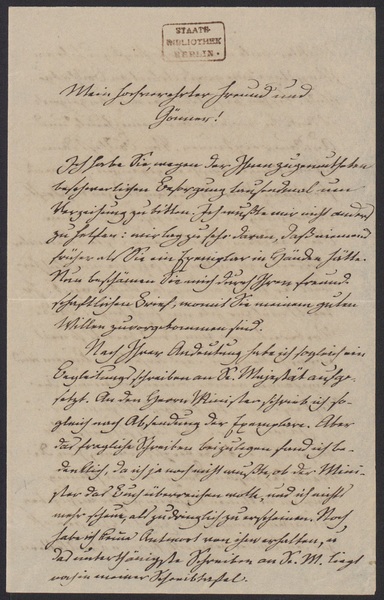 STAATS-
BIBLIOTHEK
BERLIN.
Mein hochverehrter Freund und
Gönner!
Ich habe Sie, wegen der Ihnen zugemutheten
beschwerlichen Besorgung tausendmal um
Verzeihung zu bitten. Ich wußte mir nicht anders
zu helfen: mir lag zu sehr daran, daß niemand
früher als Sie ein Exemplar in Händen hätte.
Nun beschämen Sie mich durch Ihren freund
schaftlichen Brief, womit Sie meinem guten
Willen zuvorgekommen sind.
Nach Ihrer Andeutung habe ich sogleich ein
Begleitungsschreiben an Se. Majestät aufge-
setzt. An den Herrn Minister schrieb ich so-
gleich nach Absendung der Exemplare. Aber
das fragliche Schreiben beizulegen fand ich be-
denklich, da ich ja noch nicht wußte, ob der Mini-
ster das Buch überreichen wolle, und ich nichts
mehr scheue, als zudringlich zu erscheinen. Noch
habe ich keine Antwort von ihm erhalten, u
das unterthänigste Schreiben an Se. M. liegt
noch in meiner Schreibtafel.